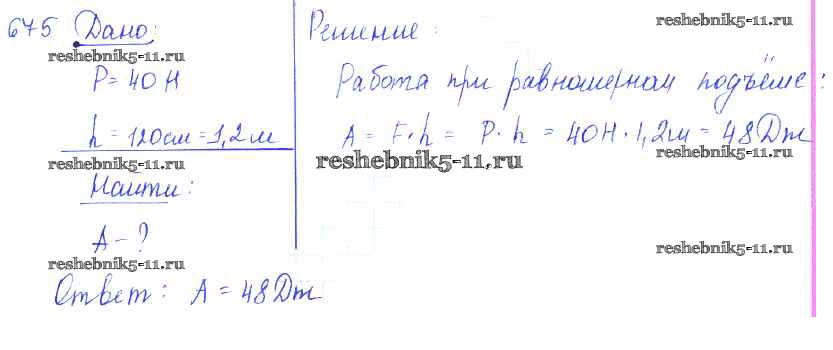 675 Дано: Решение:
reshebnik5-11.ru reshebnik5-11.ru
P = 40 Н Работа при равномерном подъёме:
h = 120см = 1,2м A = F · h = P · h = 40Н · 1,2м = 48Дж
reshebnik5-11.ru reshebnik5-11.ru reshebnik5-11.ru
Найти:
A - ?
reshebnik5-11.ru reshebnik5-11.ru
Ответ: A = 48Дж